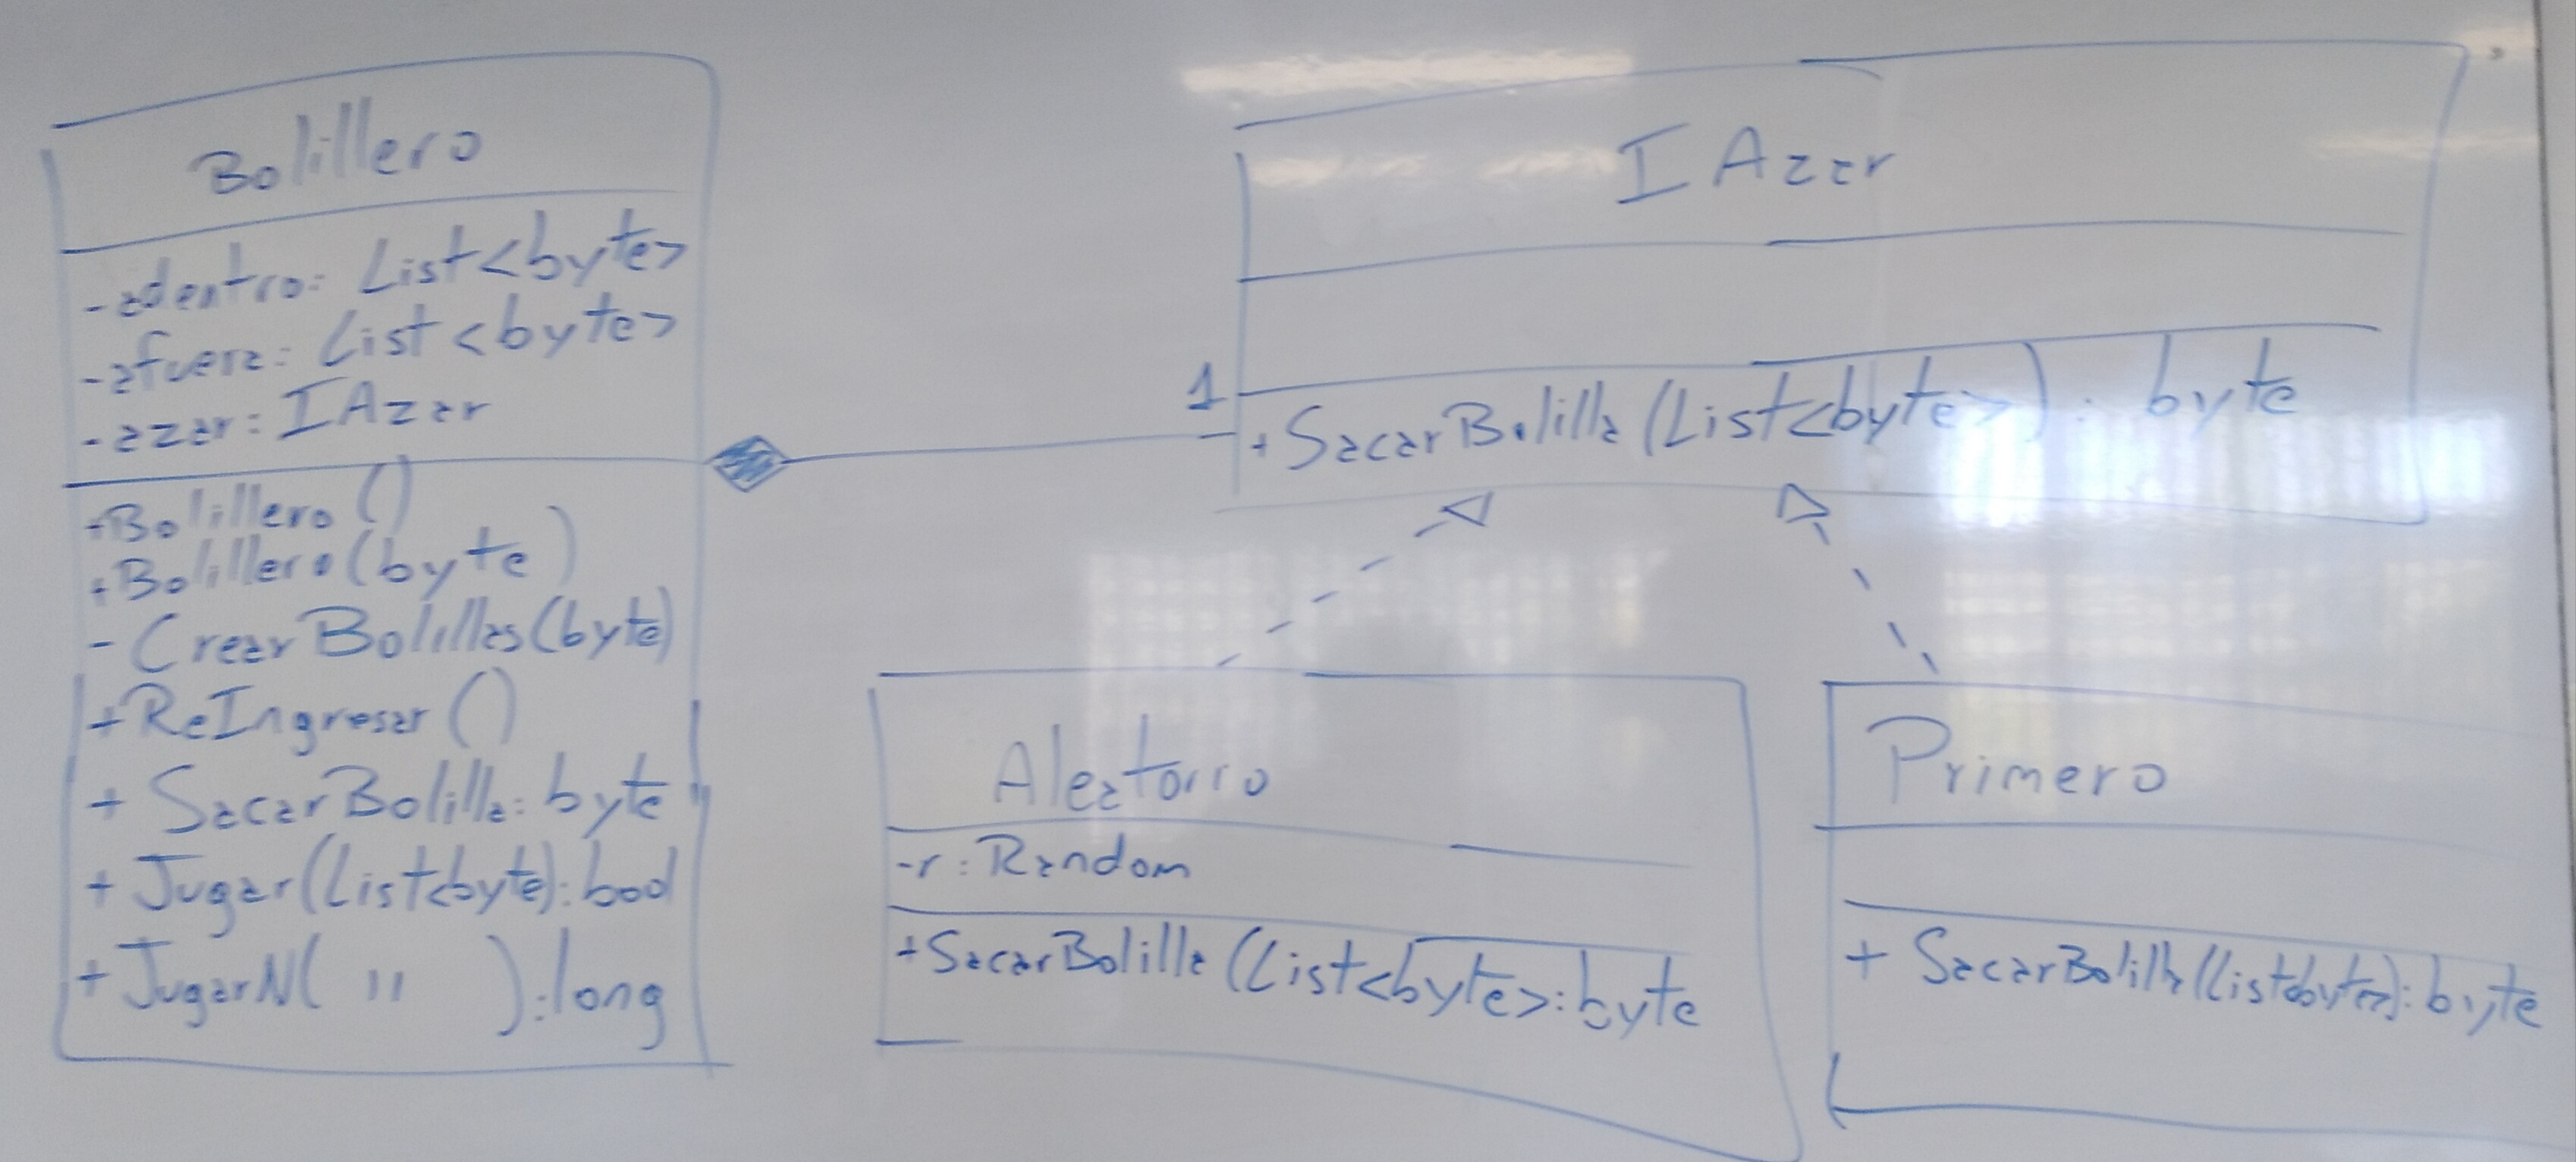 Bolillero
-adentro: List<byte>
-afuera: List<byte>
-azar: IAzar
+Bolillero()
+Bolillero(byte)
- CrearBolillas(byte)
+ReIngresar()
+ SacarBolilla: byte
+ Jugar(List<byte): bool
+ JugarN( " ): long
IAzar
1
+SacarBolilla(List<byte>): byte
Aleatorio
-r: Random
+SacarBolilla(List<byte>: byte
Primero
+ SacarBolilla(List<byte>): byte